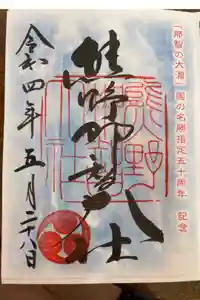 「那智の大瀧」国の名勝指定五十周年 記念
熊野那智大社
令和四年五月二八日